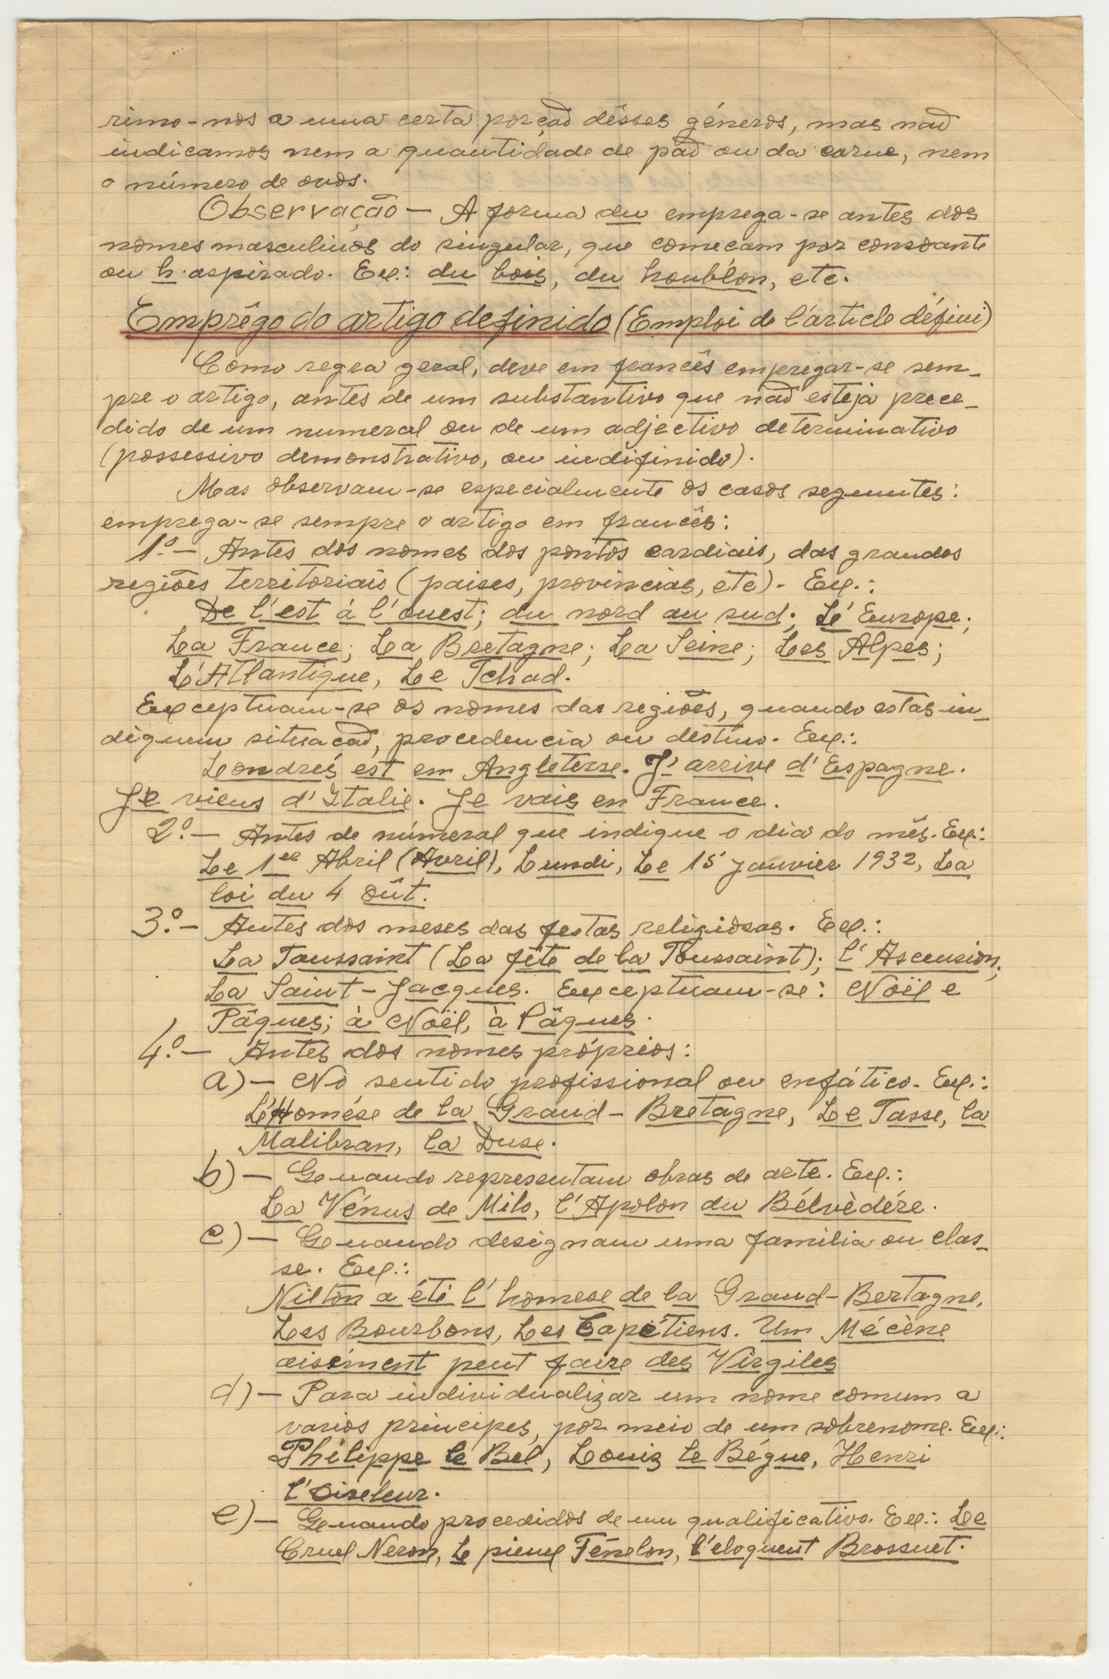 rimo-nos a uma certa porção dêsses géneros, mas não
indicamos nem a quantidade de pão ou da carne, nem
o número de ovos.
Observação — A forma du emprega-se antes dos
nomes masculinos do singular, que começam por consoante
ou h. aspirado. Ex.: du bois, du houblon, etc.
Emprêgo do artigo definido (Emploi de l'article défini)
Como regra geral, deve em francês empregar-se sem-
pre o artigo, antes de um substantivo que não esteja prece-
dido de um numeral ou de um adjectivo determinativo
(possessivo demonstrativo, ou indifinido).
Mas observam-se especialmente os casos seguintes:
emprega-se sempre o artigo em francês:
1.º — Antes dos nomes dos pontos cardiais, das grandes
regiões territoriais (paises, provincias, etc) - Ex.:
De l'est à l'ouest; du nord au sud. L'Europe;
La France; La Bretagne; La Seine; Les Alpes;
L'Atlantique, Le Tchad.
Exceptuam-se os nomes das regiões, quando estas in-
diquem situação, procedencia ou destino. Ex.:
Londres est em Angleterre. J'arrive d'Espagne.
Je viens d'Italie. Je vais en France.
2.º — Antes de númeral que indique o dia do mês. Ex:
Le 1er Abril (Avril), Lundi, Le 15 janvier 1932, La
loi du 4 Oût.
3.º — Antes dos meses das festas religiosas. Ex.:
La Toussaint (La fête de la Toussaint); l'Ascension;
La Saint-Jacques. Exceptuam-se: Noël e
Pâques; à Noël, à Pâques.
4.º — Antes dos nomes próprios:
a) — No sentido profissional ou enfático. Ex.:
L'Homére de la Grand-Bretagne, Le Tasse, la
Malibran, la Duse.
b) — Quando representam obras de arte. Ex.:
La Vénus de Milo, l'Apolon du Bélvèdére.
c) — Quando designam uma familia ou clas-
se. Ex.:
Nilton a éti l'homere de la Grand-Bertagne.
Les Bourbons, Les Capétiens. Um Mécène
aisément peut faire des Virgiles
d) — Para individualizar um nome comum a
varios principes, por meio de um sobrenome. Ex.:
Philippe le Bel, Louis le Bégue, Henri
l'Oiseleur.
e) — Quando procedidos de um qualificativo. Ex.: Le
Cruel Neron, Le pieux Fénelon, l'eloquent Brossuet.